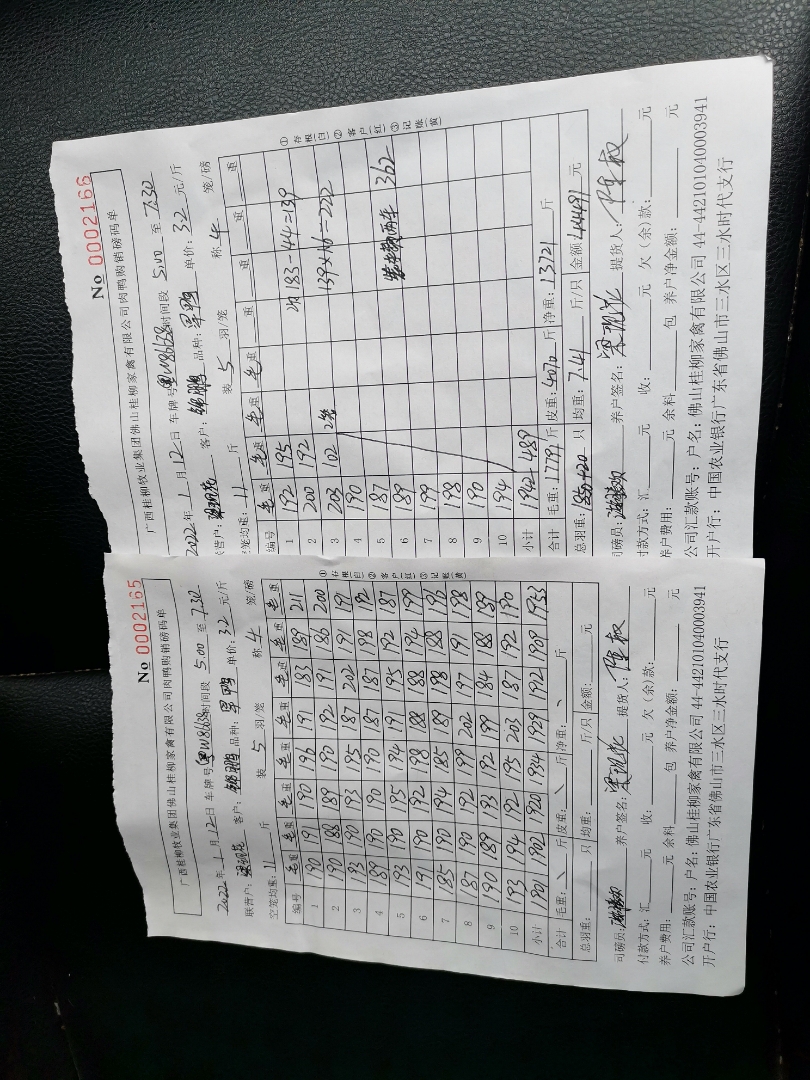 No 0002165
广西桂柳牧业集团佛山桂柳家禽有限公司肉鸭购销磅码单
2022年1月12日 车牌号 时间段 5.00 至 7.30
联营户: 客户: 品种: 单价: 3.2 元/斤
空笼均重: 11 斤 装 5 羽/笼 称 4 笼/磅
编号 毛重 毛重 毛重 毛重 毛重 毛重 毛重 毛重
1 190 191 190 196 191 183 189 211
2 190 188 189 190 192 191 186 200
3 193 190 193 195 187 202 191 191
4 189 190 190 190 187 187 198 182
5 193 190 195 194 191 195 192 187
6 191 190 192 198 188 188 194 199
7 185 190 194 185 189 198 188 196
8 187 190 192 199 202 197 191 198
9 190 189 193 192 199 184 188 189
10 193 194 192 195 203 187 192 190
小计 1901 1902 1920 1934 1929 1912 1909 1933
合计 毛重: 斤 皮重: 斤 净重: 斤
总羽重: 只 均重: 斤/只 金额: 元
司磅员: 养户签名: 提货人:
付款方式: 汇 元 收: 元 欠(余)款: 元
养户费用: 元 余料 包 养户净金额: 元
公司汇款账号: 户名: 佛山桂柳家禽有限公司 44-442101040003941
开户行: 中国农业银行广东省佛山市三水区三水时代支行
①存根(白)②客户(红)③记账(黄)
No 0002166
广西桂柳牧业集团佛山桂柳家禽有限公司肉鸭购销磅码单
2022年1月12日 车牌号 时间段 5.00 至 7.30
联营户: 客户: 品种: 单价: 3.2 元/斤
空笼均重: 11 斤 装 5 羽/笼 称 4 笼/磅
编号 毛重 毛重 毛重 毛重 重 重 重
1 192 195 183-44=139
2 200 192 139×16=2222
3 203 102 2笼
4 190
5 187 362
6 189
7 199
8 198
9 190
10 194
小计 1942 489
合计 毛重: 17791 斤 皮重: 4070 斤 净重: 13721 斤
总羽重: 只 均重: 7.41 斤/只 金额: 元
司磅员: 养户签名: 提货人:
付款方式: 汇 元 收: 元 欠(余)款: 元
养户费用: 元 余料 包 养户净金额: 元
公司汇款账号: 户名: 佛山桂柳家禽有限公司 44-442101040003941
开户行: 中国农业银行广东省佛山市三水区三水时代支行
①存根(白)②客户(红)③记账(黄)